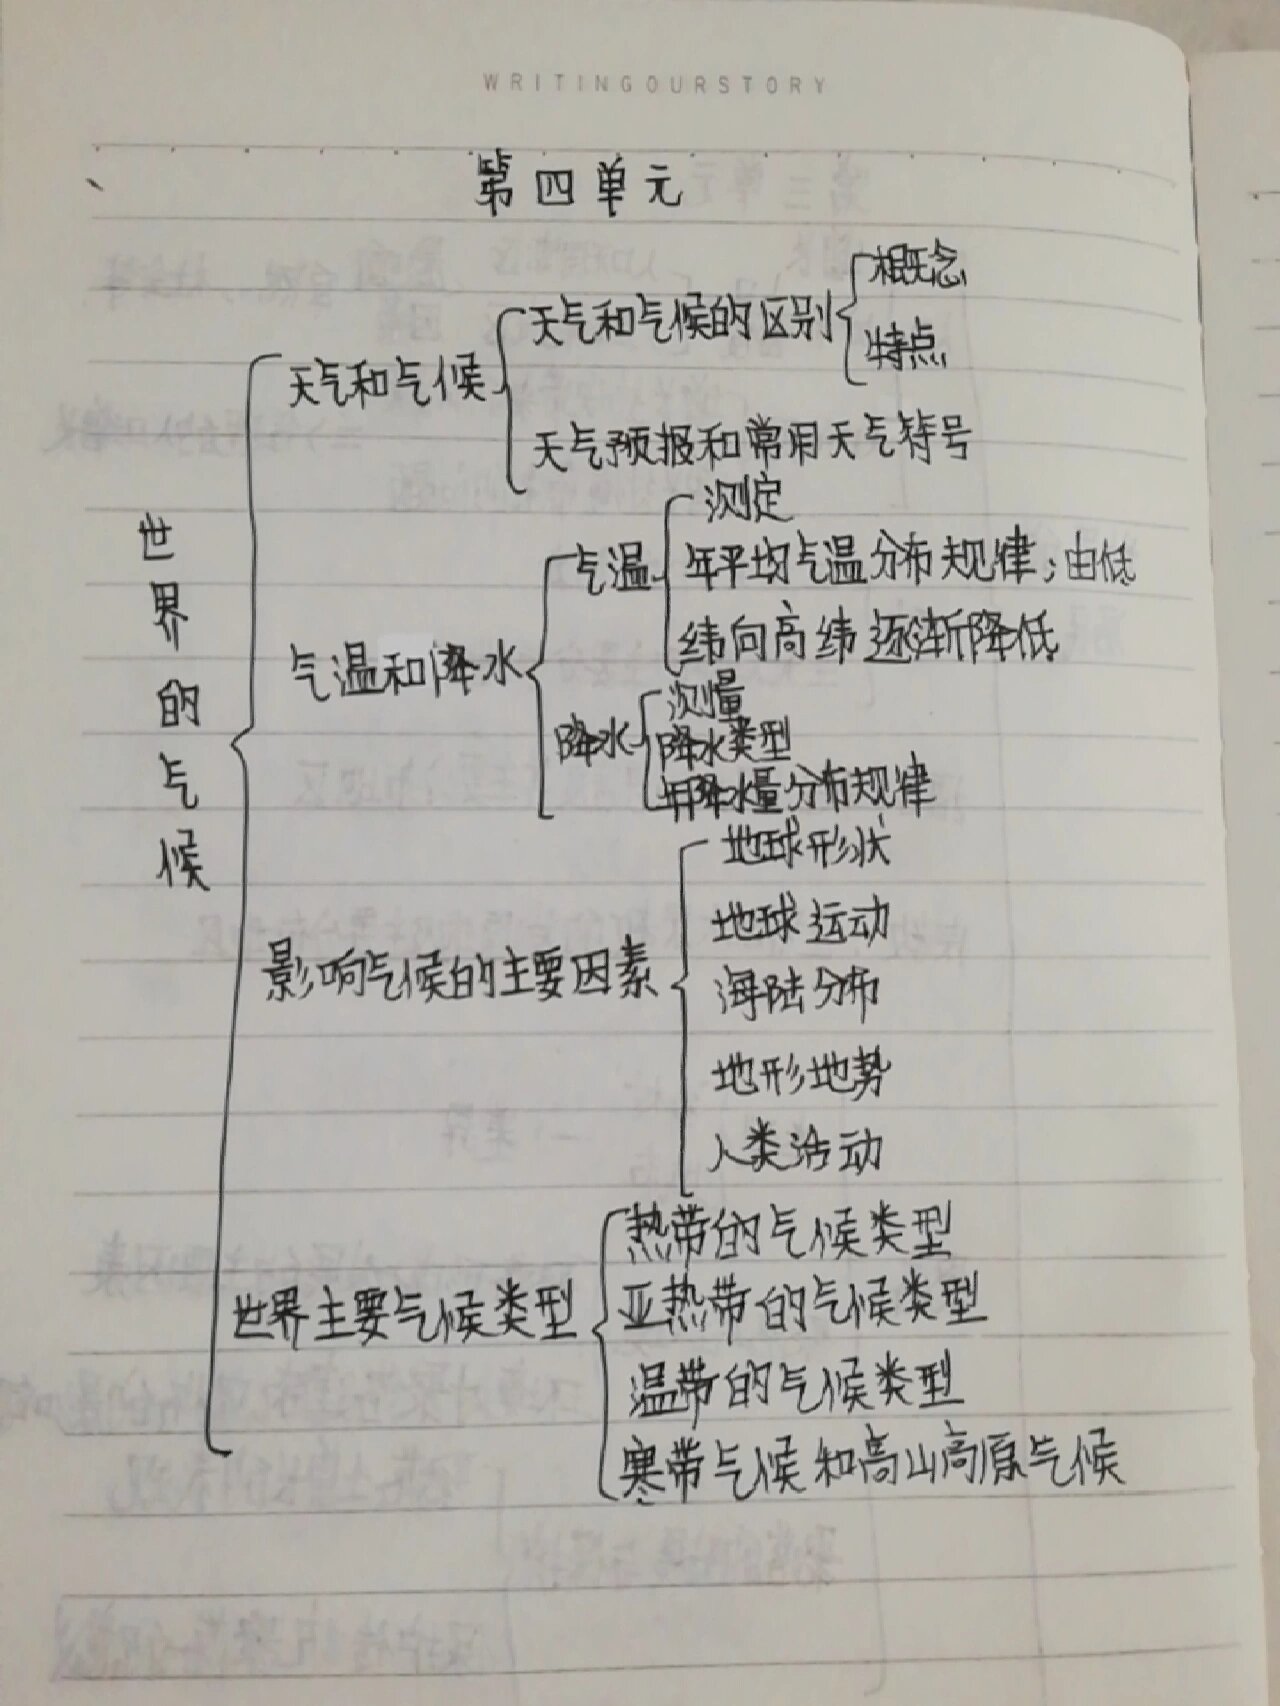 WRITINGOURSTORY
第四单元
世界的气候
天气和气候
天气和气候的区别
概念
特点
天气预报和常用天气符号
气温和降水
气温
测定
年平均气温分布规律:由低
纬向高纬逐渐降低
降水
测量
降水类型
年降水量分布规律
影响气候的主要因素
地球形状
地球运动
海陆分布
地形地势
人类活动
世界主要气候类型
热带的气候类型
亚热带的气候类型
温带的气候类型
寒带气候和高山高原气候